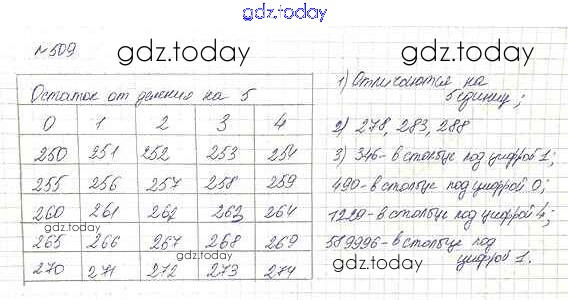 gdz.today
№509
gdz.today
gdz.today
Остаток от деления на 5
0 1 2 3 4
250 251 252 253 254
255 256 257 258 259
260 261 262 263 264
265 266 267 268 269
gdz.today
270 271 272 273 274
1) Отличаются на
5 единиц;
2) 278, 283, 288
3) 346- в столбце под цифрой 1;
490- в столбце под цифрой 0;
1229- в столбце под цифрой 4;
589996- в столбце под
цифрой 1.
gdz.today